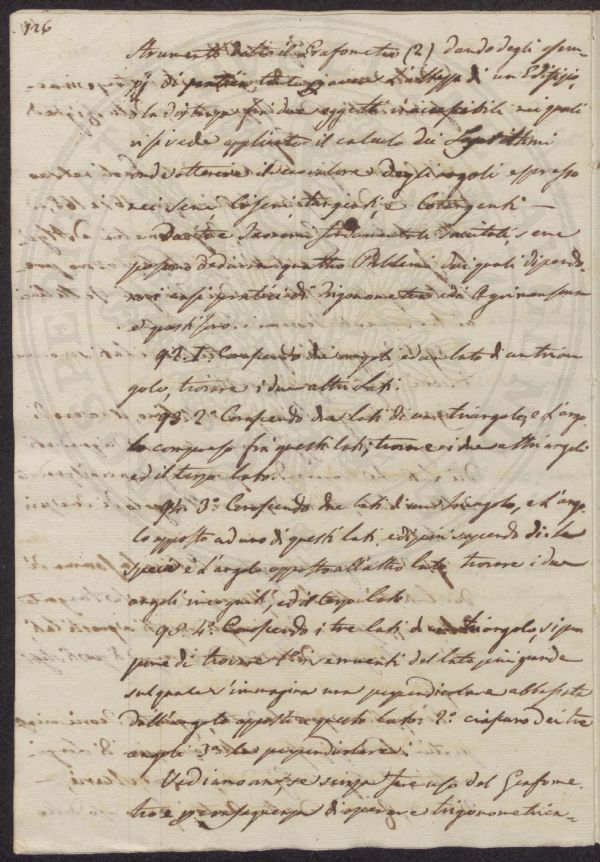 126
Strumento detto il Grafometro (2) dando degli esem-
pj di
la distanza fra due oggetti inaccessibili nei quali
vi si vede applicato il calcolo dei Logaritmi
onde ottenere il valore degli angoli espresso
nei seni Coseni, tangenti, e Cotangenti —
Teoremi fondamentali risultati se ne
possono dedurre quattro Problemi dai quali dipendo-
no i casi pratici di Trigonometria, ed Agrimensura
e questi sono.
92. 1.° Conoscendo due angoli ed un lato di un trian-
golo, trovare i due altri lati.
93. 2.° Conoscendo due lati di un triangolo, e l'ango-
lo compreso fra questi lati, trovare i due altri angoli
ed il terzo lato.
94. 3.° Conoscendo due lati di un triangolo, e l'ango-
lo opposto ad uno di questi lati, e di più sapendo di che
specie è l'angolo opposto all'altro lato, trovare i due
angoli incogniti, ed il terzo lato.
95. 4.° Conoscendo i tre lati di un triangolo si pro-
pone di trovare 1.° di segmenti del lato più grande
sul quale s'immagina una perpendicolare abbassata
dall'angolo opposto a questo lato: 2.° ciascuno dei tre
angoli 3.° la perpendicolare.
Vediamo se senza fare uso del Grafome-
tro e per conseguenza di operare trigonometrica-